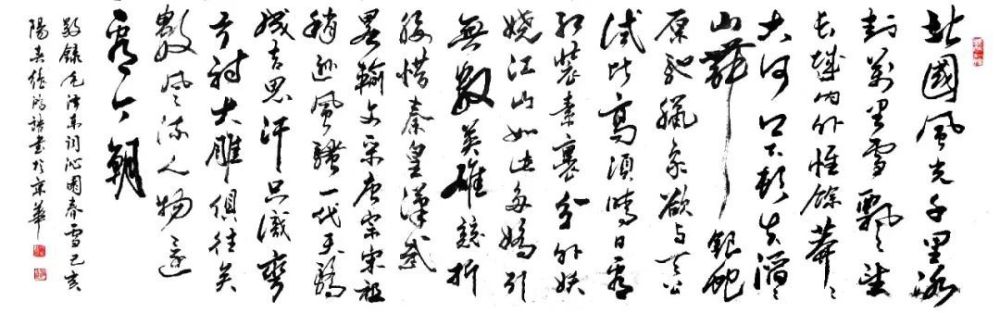 北國風光千里冰
封萬里雪飄望
長城內外惟餘莽〻
大河上下頓失滔〻
山舞銀蛇
原馳蠟象欲與天公
試比高須晴日看
紅裝素裹分外妖
嬈江山如此多嬌引
無數英雄競折
腰惜秦皇漢武
略輸文采唐宗宋祖
稍遜風騷一代天驕
成吉思汗只識彎
弓射大雕俱往矣
數風流人物還
看今朝
敬錄毛澤東詞沁園春雪己亥
陽春書於京華